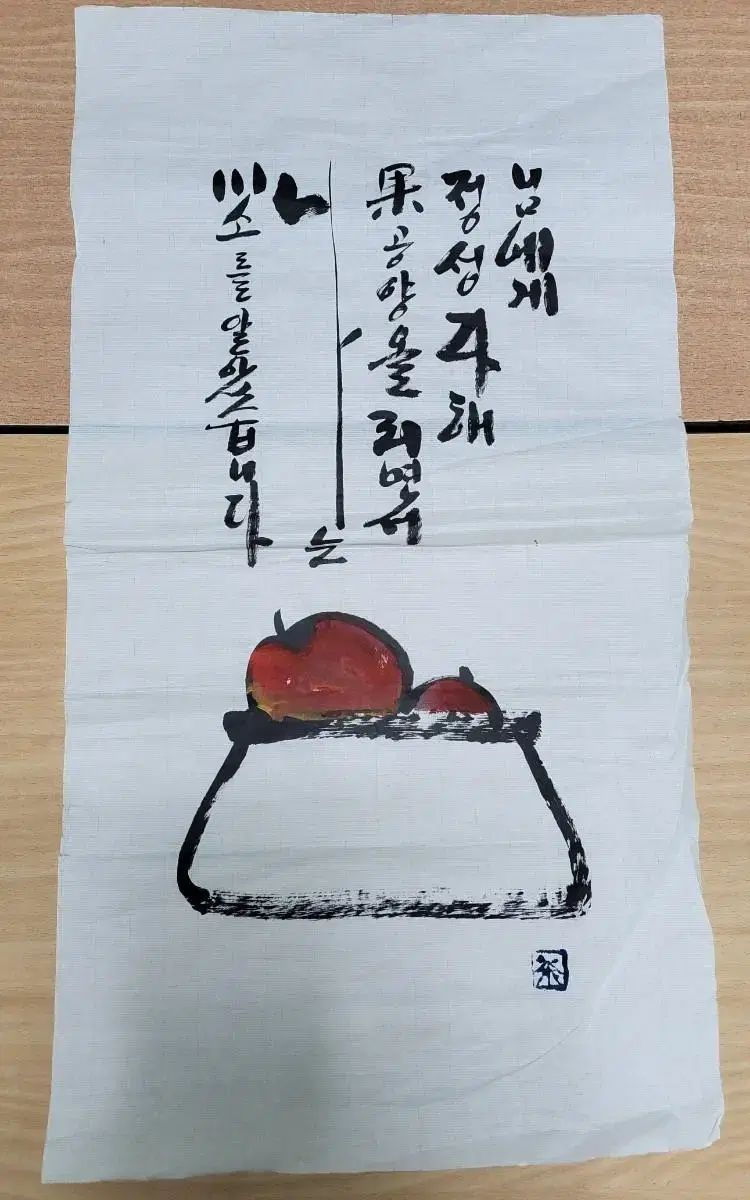 님에게
정성 다해
果공양 올리면서
나는
미소를 알았습니다